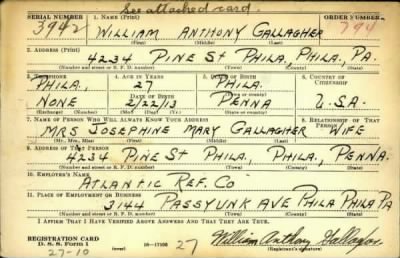 See attached card.
SERIAL NUMBER 1. NAME (Print) ORDER NUMBER
3942 WILLIAM ANTHONY GALLAGHER 794
(First) (Middle) (Last)
2. ADDRESS (Print)
4234 PINE ST PHILA., PHILA., PA.
(Number and street or R. F. D. number) (Town) (County) (State)
3. TELEPHONE 4. AGE IN YEARS 5. PLACE OF BIRTH 6. COUNTRY OF CITIZENSHIP
PHILA. 27 PHILA.
DATE OF BIRTH (Town or county)
NONE 2/22/13 PENNA U.S.A.
(Exchange) (Number) (Mo.) (Day) (Yr.) (State or country)
7. NAME OF PERSON WHO WILL ALWAYS KNOW YOUR ADDRESS 8. RELATIONSHIP OF THAT PERSON
MRS JOSEPHINE MARY GALLAGHER WIFE
(Mr., Mrs., Miss) (First) (Middle) (Last)
9. ADDRESS OF THAT PERSON
4234 PINE ST PHILA., PHILA., PENNA.
(Number and street or R. F. D. number) (Town) (County) (State)
10. EMPLOYER'S NAME
ATLANTIC REF. CO
11. PLACE OF EMPLOYMENT OR BUSINESS
3144 PASSYUNK AVE PHILA PHILA PA
(Number and street or R. F. D. number) (Town) (County) (State)
I AFFIRM THAT I HAVE VERIFIED ABOVE ANSWERS AND THAT THEY ARE TRUE.
REGISTRATION CARD
D. S. S. Form 1 (over) 16—17105 27 William Anthony Gallagher
27-10 (Registrant's signature)